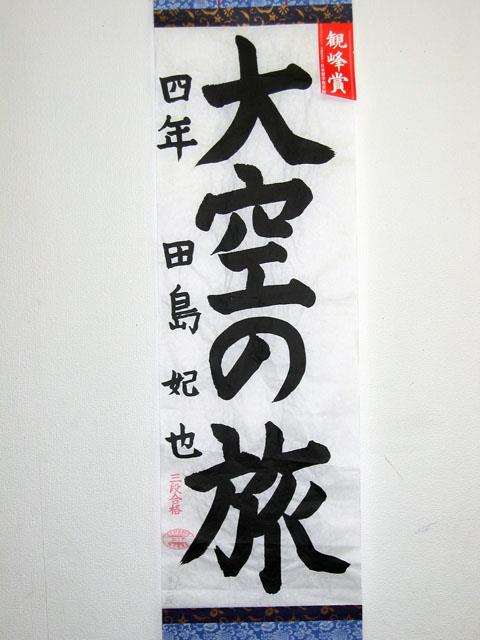 観峰賞
大空の旅
四年 田島妃也
三段合格